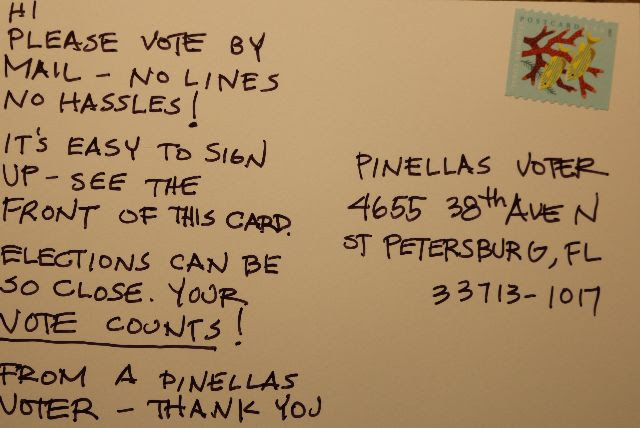 HI
PLEASE VOTE BY
MAIL - NO LINES
NO HASSLES!
IT'S EASY TO SIGN
UP - SEE THE
FRONT OF THIS CARD.
ELECTIONS CAN BE
SO CLOSE. YOUR
VOTE COUNTS!
FROM A PINELLAS
VOTER - THANK YOU
POSTCARD
PINELLAS VOTER
4655 38th AVE N
ST PETERSBURG, FL
33713-1017